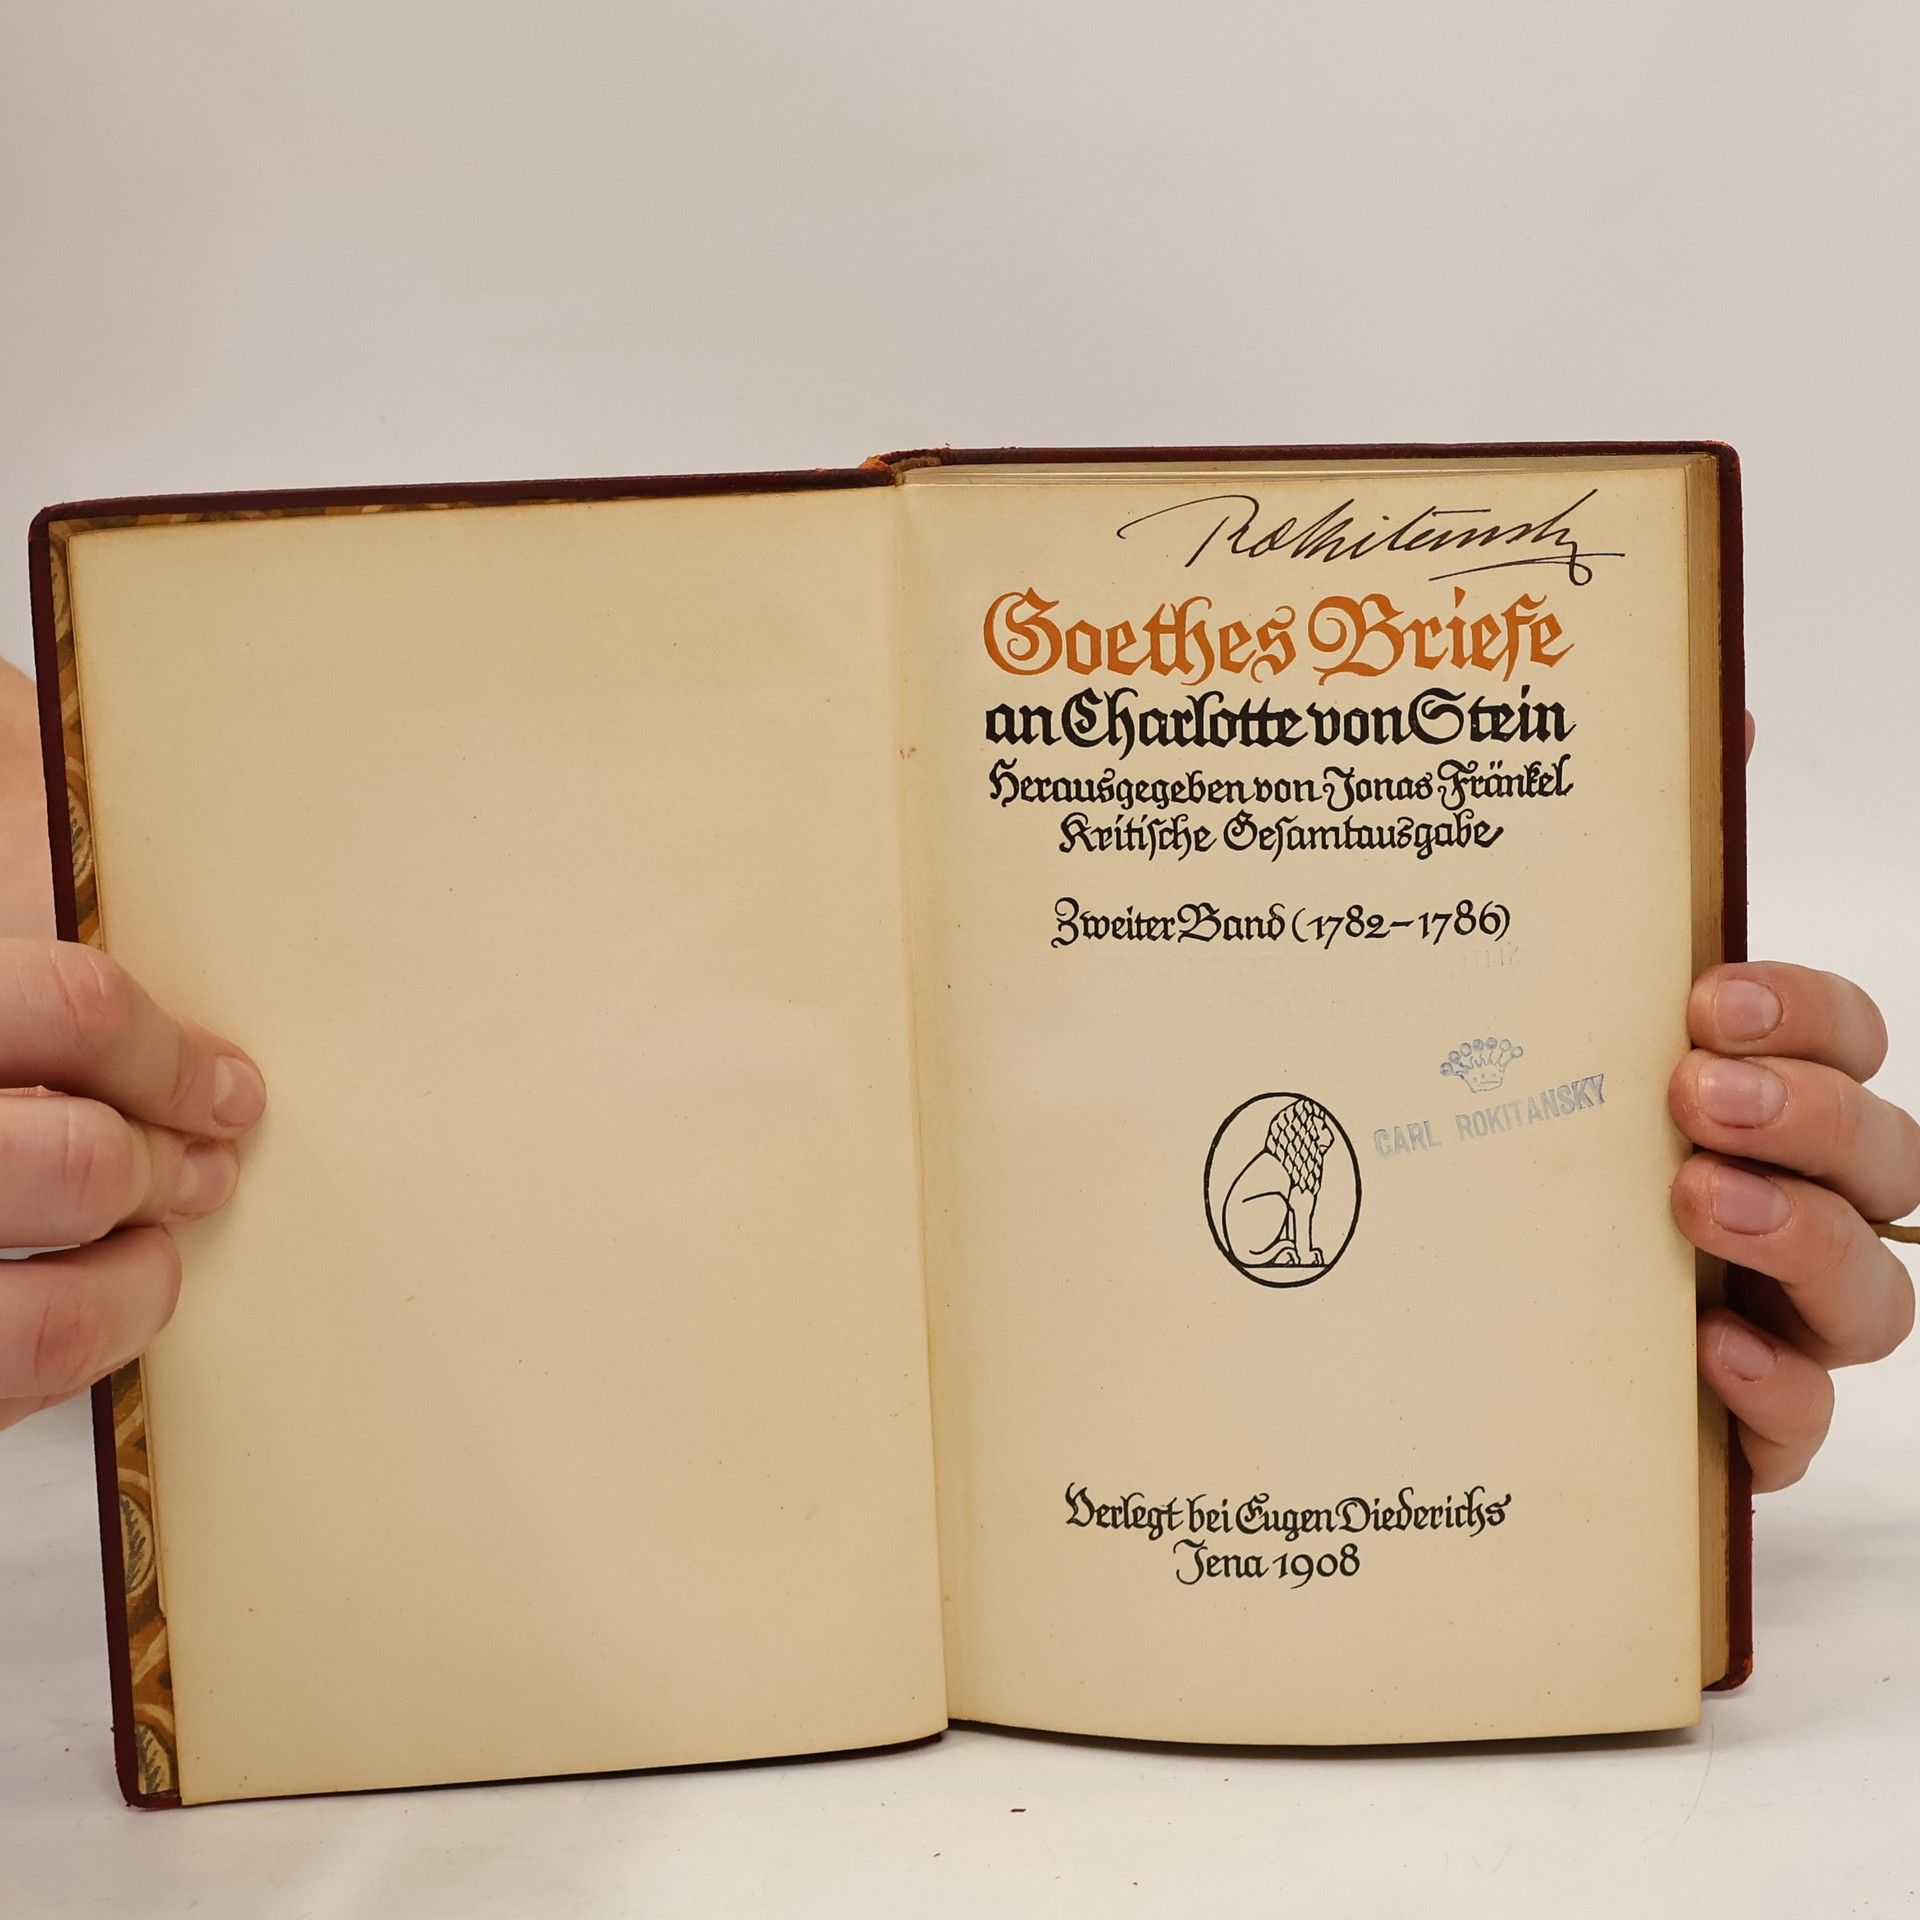 Rokitansky
Goethes Briefe
an Charlotte von Stein
Herausgegeben von Jonas Fränkel
Kritische Gesamtausgabe
Zweiter Band (1782-1786)
CARL ROKITANSKY
Verlegt bei Eugen Diederichs
Jena 1908